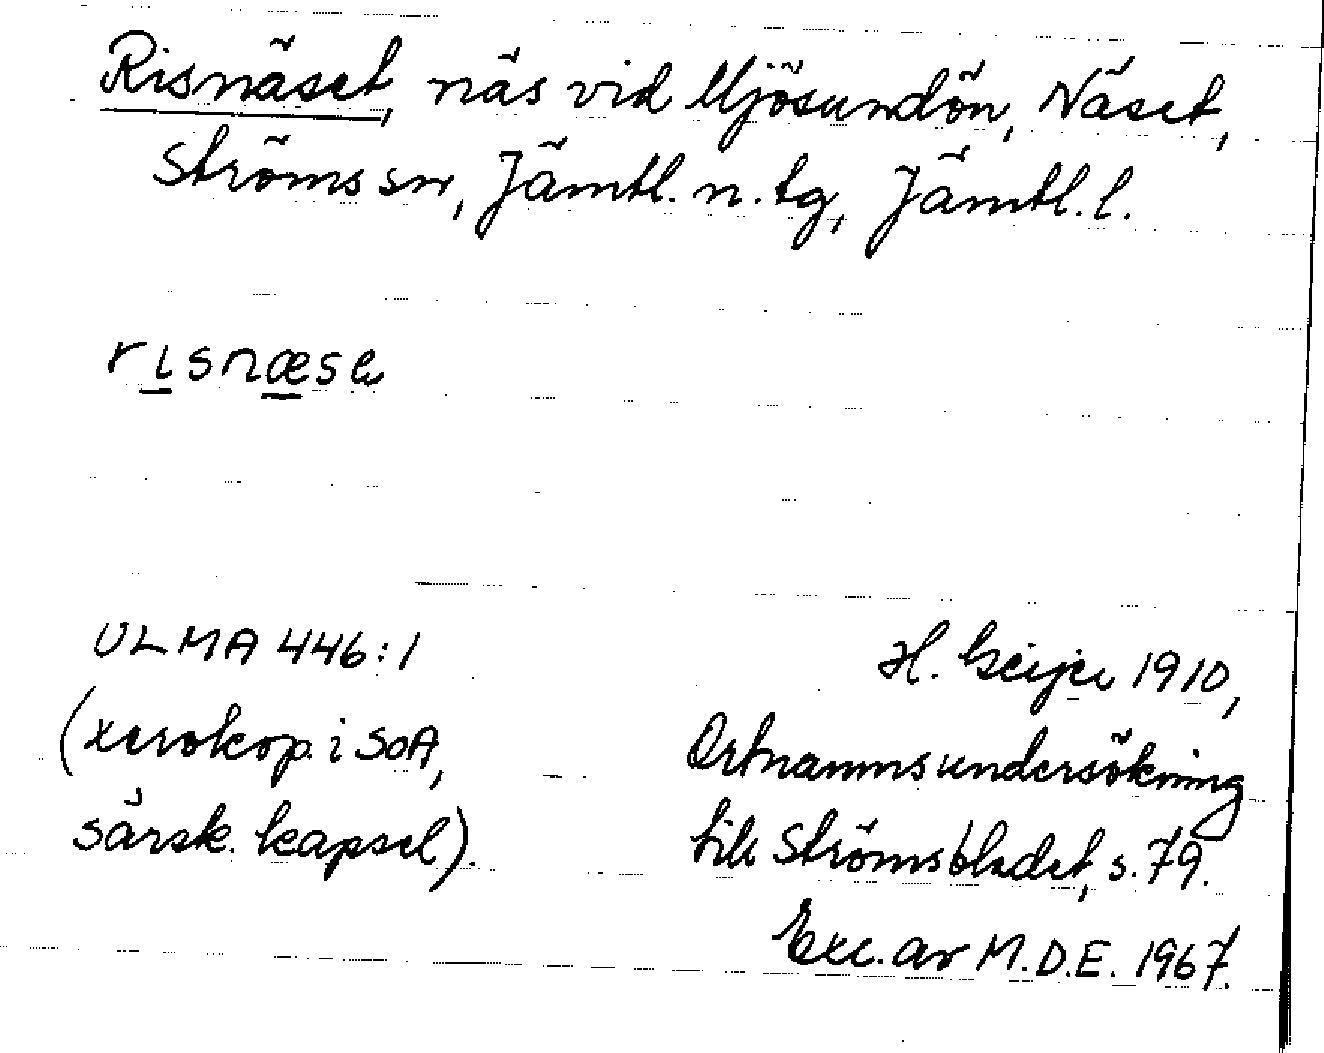 Risnäset, näs vid Mjösundön, Näset,
Ströms sn, Jämtl. n. tg, Jämtl. l.
rısnæsa
ULMA 446:1
(xerokop. i SOA,
särsk. kapsel).
H. Geijer 1910,
Ortnammsundersökning
till Strömsbladet, s. 79.
Exc. av M.D.E. 1967.